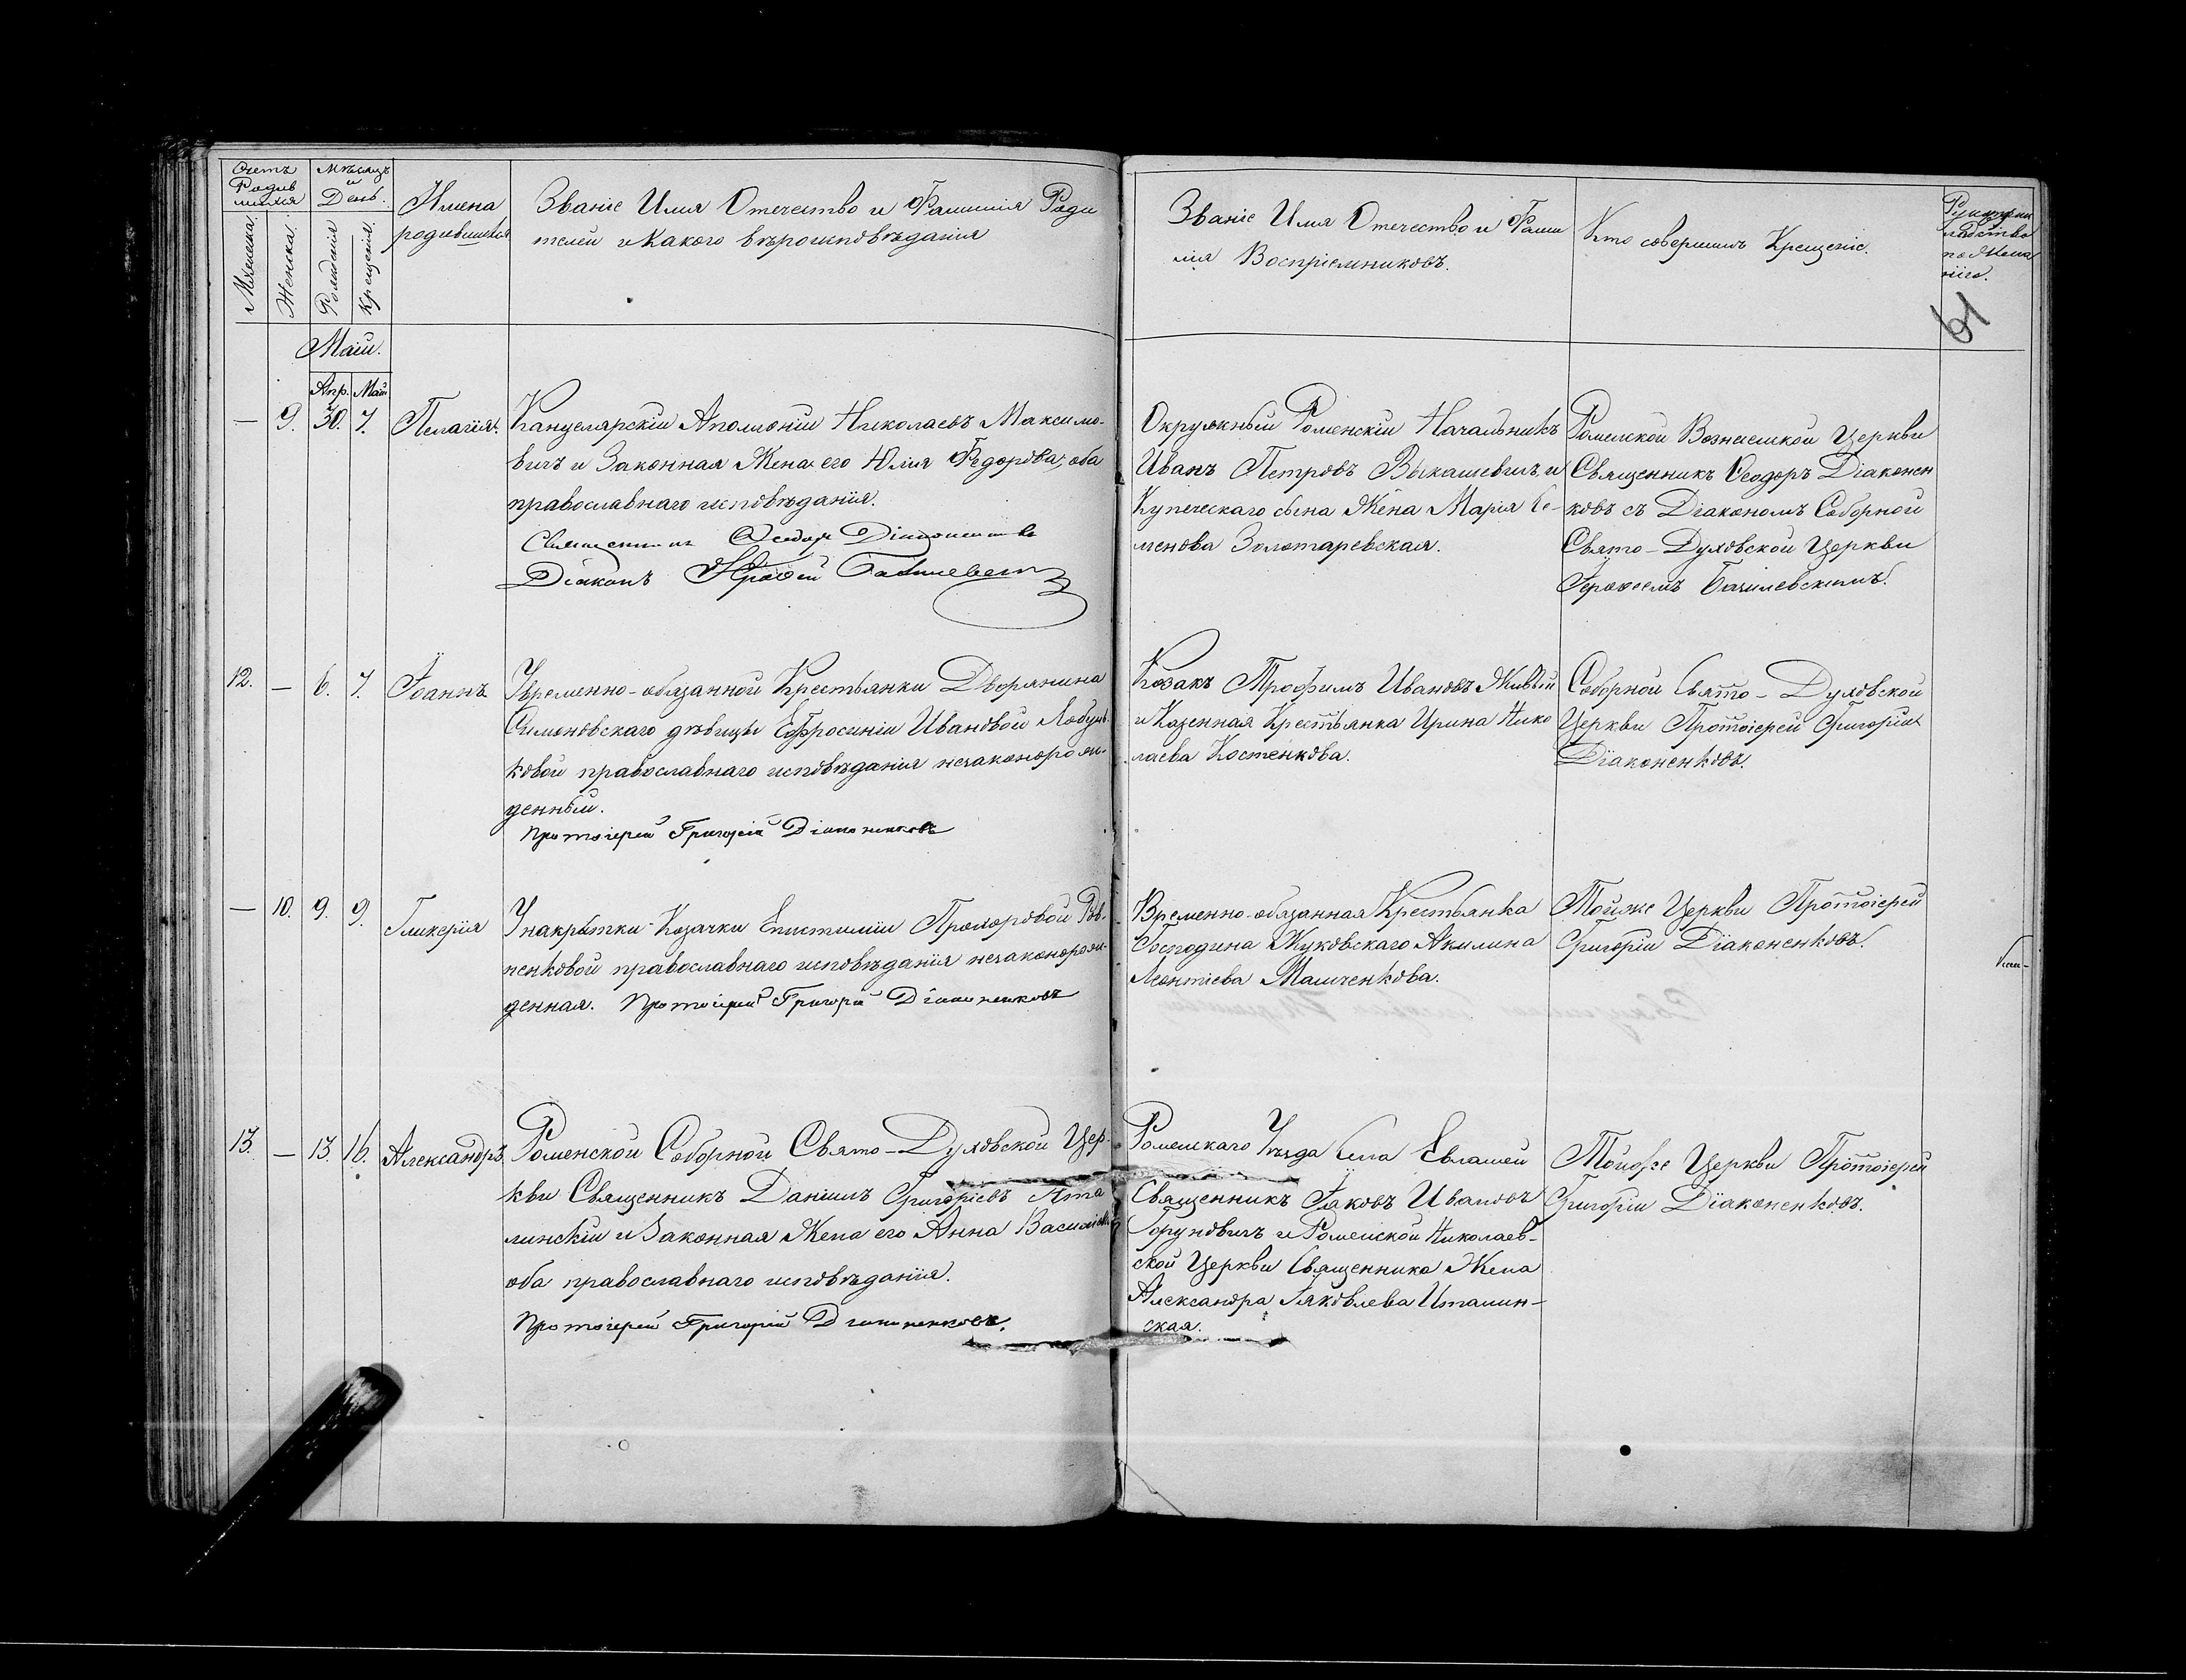 Счетъ
Родив
шихся
Мѣсяцъ
и
День.
Мужеска.
Женска.
Рожденія
Крещенія.
Имена
родившихся
Званіе Имя Отечество и Фамилія Роди
телей и Какого вѣроисповѣданія
Званіе Имя Отечество и Фами
лія Воспріемниковъ.
Кто совершилъ Крещеніе.
61
Маій.
Апр. Маій
— 9. 30. 7. Пелагія.
Канцелярскій Аполлоній Николаевъ Максимо-
вичъ и Законная Жена его Юлія Ѳедорова, оба
православнаго исповѣданія.
Священникъ Ѳеодоръ Діаконенковъ
Діаконъ
Окружный Роменскій Начальникъ
Иванъ Петровъ Выкашевичъ, и
Купеческаго сына Жена Марія Се-
менова Золотаревская.
Роменской Вознесенской Церкви
Священникъ Ѳеодоръ Діаконен
ковъ съ Діакономъ Соборной
Свято-Духовской Церкви
Іероѳеемъ Базилевскимъ.
12. — 6. 7. Іоаннъ
Увременно-обязанной Крестьянки Дворянина
Симоновскаго дѣвицы Евфросиніи Ивановой
ковой православнаго исповѣданія незаконорож-
денный.
Протоіерей Григорій Діаконенковъ
Козакъ Трофимъ Ивановъ Живый
и Казенная Крестьянка Ирина Нико
лаева Костенкова.
Соборной Свято-Духовской
Церкви Протоіерей Григорій
Діаконенковъ.
— 10. 9. 9. Гликерія
Унакрытки Козачки Епистиміи Прохоровой
ненковой православнаго исповѣданія незаконорож-
денная. Протоіерей Григорій Діаконенковъ
Временно-обязанная Крестьянка
Господина Жуковскаго Акилина
Леонтіева Мамченкова.
Тойже Церкви Протоіерей
Григорій Діаконенковъ.
13. — 13. 16. Александръ
Роменской Соборной Свято-Духовской Цер-
кви Священникъ Даніилъ Григоріевъ
линскій и Законная Жена его Анна
оба православнаго исповѣданія.
Протоіерей Григорій Діаконенковъ.
Роменскаго Уѣзда Села Евлашей
Священникъ Іаковъ Ивановъ
Горуновичъ и Роменской Николаев-
ской Церкви Священника Жена
Александра Іаковлева
ская.
Тойже Церкви Протоіерей
Григорій Діаконенковъ.